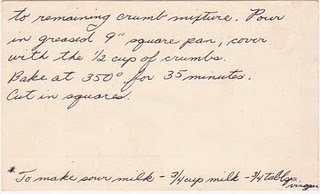 to remaining crumb mixture. Pour
in greased 9" square pan, cover
with the 1/2 cup of crumbs.
Bake at 350° for 35 minutes.
Cut in squares.
*To make sour milk - 3/4 cup milk - 3/4 tablsp.
vinegar